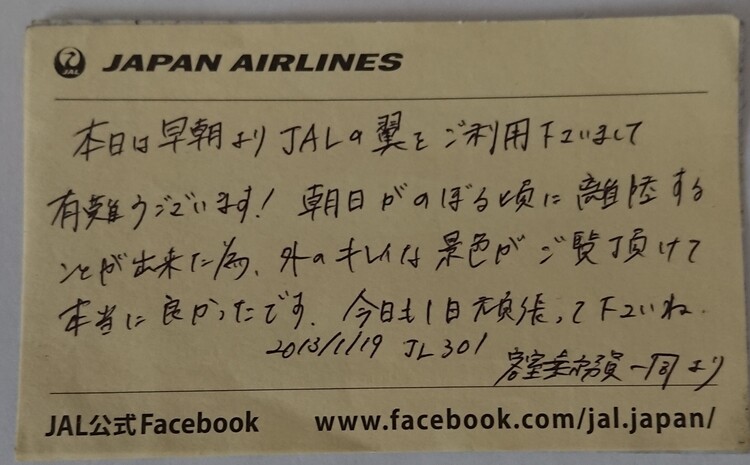 JAL
JAPAN AIRLINES
本日は早朝よりJALの翼をご利用下さいまして
有難うございます! 朝日がのぼる頃に離陸する
ことが出来た為、外のキレイな景色がご覧頂けて
本当に良かったです。今日も1日頑張って下さいね.
2013/1/19 JL301
客室乗務員一同より
JAL公式Facebook www.facebook.com/jal.japan/